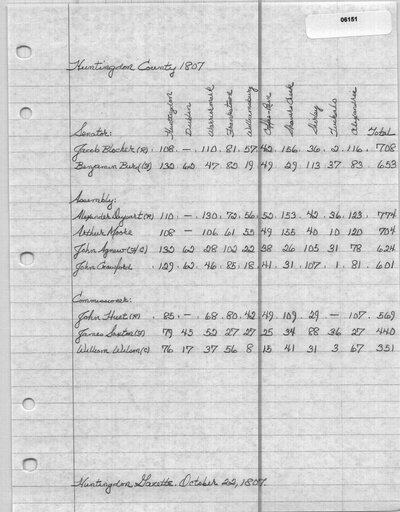 06151
Huntingdon County 1807
Huntingdon Dublin Warriormark Frankstown Williamsburg Coffee Run Shaver's Creek Shirley Alexandria Total
Senator:
Jacob Blocher (R) 108 . - . 110 . 81 . 57 42 . 156 . 36 . 2 . 116 . 708
Benjamin Burd 132 62 47 82 19 49 29 113 37 83 653
Assembly:
Alexander Dysart (R) 110 - . 130 . 72 . 56 52 . 153 . 42 . 36 . 123 . 774
Arthur Moore 108 - 106 61 55 49 155 40 10 120 704
John Agnew 132 62 28 102 22 38 26 105 31 78 624
John Crawford . 129 . 62 . 46 . 85 . 18 . 41 . 31 . 107 . 1 . 81 . 601
Commissioner:
John Huet (R) . 85 . - . 68 . 80 . 42 49 . 109 . 29 . - . 107 . 569
James Saxton 79 45 52 27 27 25 34 88 36 27 440
William Wilson (C) 76 17 37 56 8 15 41 31 3 67 351
Huntingdon Gazette. October 22, 1807